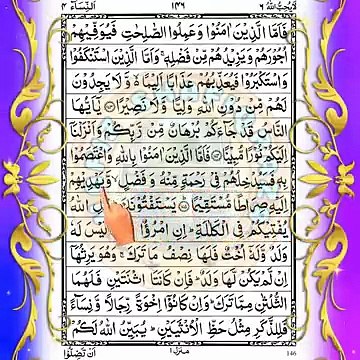 لَا يُحِبُّ اللهُ ٦ ١٤٦ اَلنِّسَآء ٤
فَاَمَّا الَّذِيْنَ اٰمَنُوْا وَعَمِلُوا الصّٰلِحٰتِ فَيُوَفِّيْهِمْ
اُجُوْرَهُمْ وَيَزِيْدُهُمْ مِّنْ فَضْلِهٖ ۚ وَاَمَّا الَّذِيْنَ اسْتَنْكَفُوْا
وَاسْتَكْبَرُوْا فَيُعَذِّبُهُمْ عَذَابًا اَلِيْمًا ۙ وَّلَا يَجِدُوْنَ
لَهُمْ مِّنْ دُوْنِ اللهِ وَلِيًّا وَّلَا نَصِيْرًا ۝ يٰۤاَيُّهَا
النَّاسُ قَدْ جَآءَكُمْ بُرْهَانٌ مِّنْ رَّبِّكُمْ وَاَنْزَلْنَاۤ
اِلَيْكُمْ نُوْرًا مُّبِيْنًا ۝ فَاَمَّا الَّذِيْنَ اٰمَنُوْا بِاللهِ وَاعْتَصَمُوْا
بِهٖ فَسَيُدْخِلُهُمْ فِيْ رَحْمَةٍ مِّنْهُ وَفَضْلٍ ۙ وَّيَهْدِيْهِمْ
اِلَيْهِ صِرَاطًا مُّسْتَقِيْمًا ۝ يَسْتَفْتُوْنَكَ ؕ اللهُ
يُفْتِيْكُمْ فِي الْكَلٰلَةِ ؕ اِنِ امْرُؤٌا لَيْسَ لَهٗ
وَلَدٌ وَّلَهٗۤ اُخْتٌ فَلَهَا نِصْفُ مَا تَرَكَ ۚ وَهُوَ يَرِثُهَاۤ
اِنْ لَّمْ يَكُنْ لَّهَا وَلَدٌ ؕ فَاِنْ كَانَتَا اثْنَتَيْنِ فَلَهُمَا
الثُّلُثٰنِ مِمَّا تَرَكَ ؕ وَاِنْ كَانُوْۤا اِخْوَةً رِّجَالًا وَّنِسَآءً
فَلِلذَّكَرِ مِثْلُ حَظِّ الْاُنْثَيَيْنِ ؕ يُبَيِّنُ اللهُ لَكُمْ
اَنْ تَضِلُّوْا منزل ١ 146